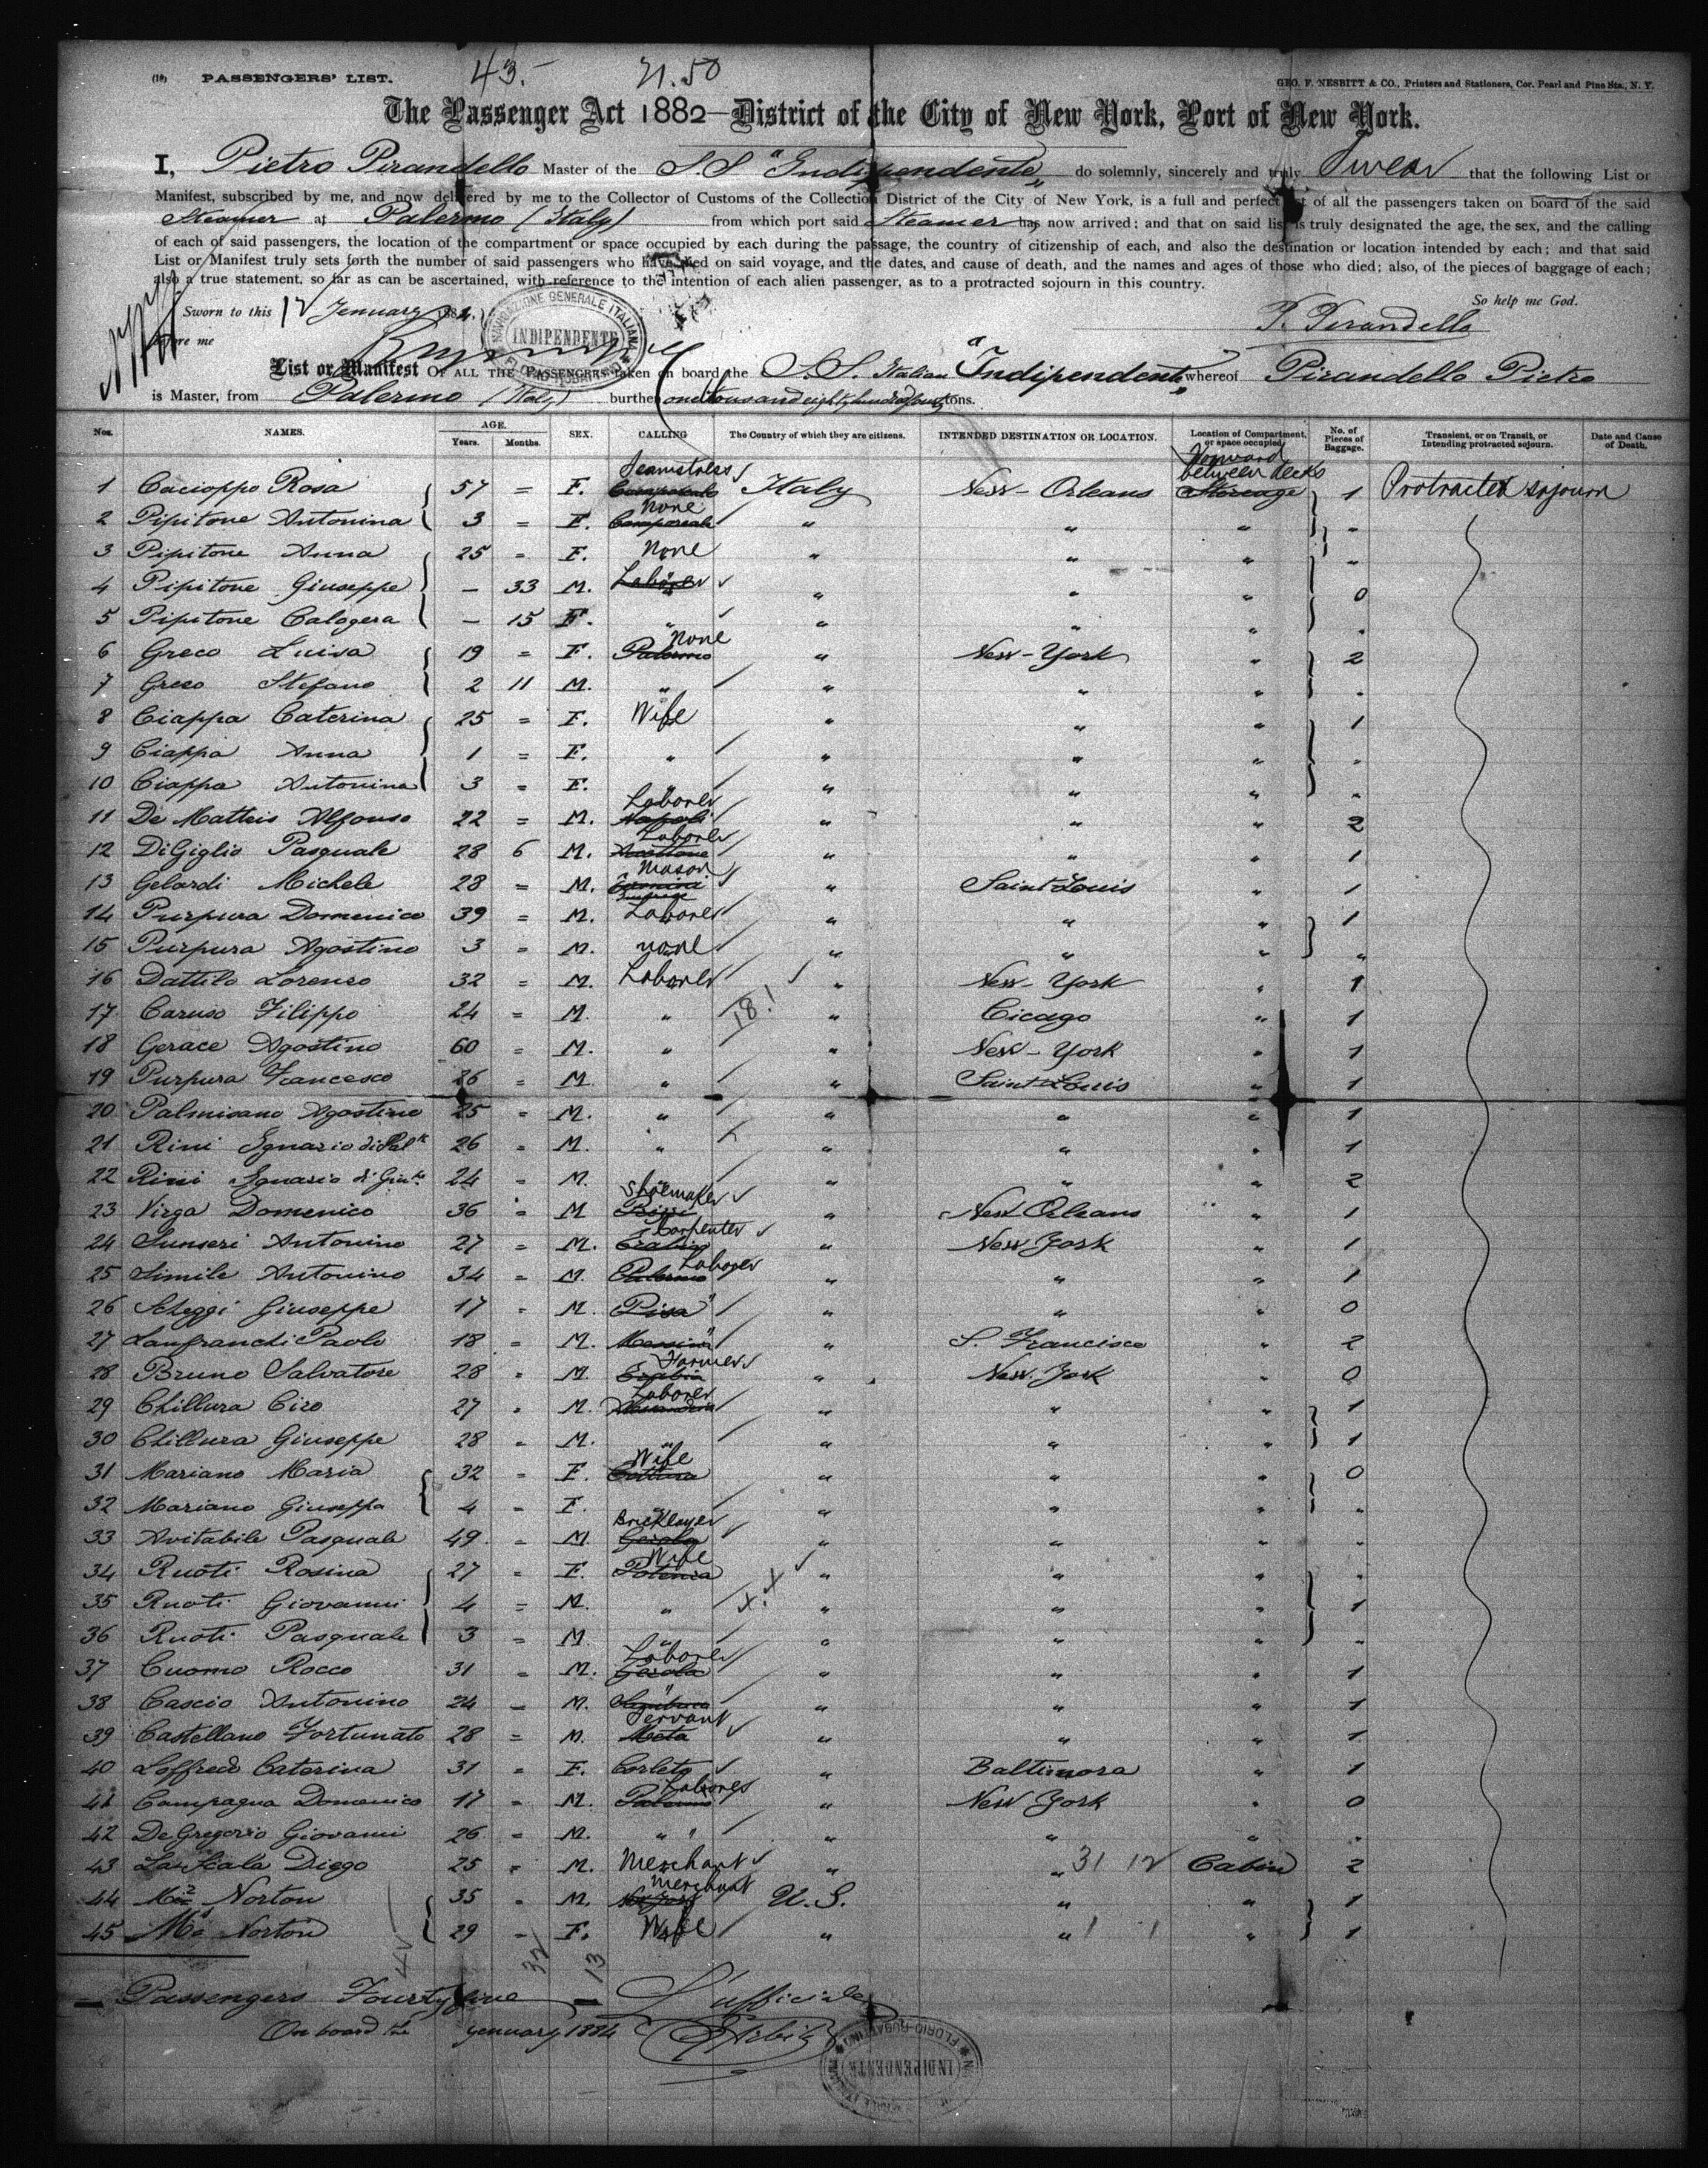 (18) PASSENGERS' LIST. 43.- 21.50 GEO. F. NESBITT & CO., Printers and Stationers, Cor. Pearl and Pine Sts., N. Y.
The Passenger Act 1882—District of the City of New York, Port of New York.
I, Pietro Pirandello Master of the S.S "Indipendente" do solemnly, sincerely and truly Swear that the following List or
Manifest, subscribed by me, and now delivered by me to the Collector of Customs of the Collection District of the City of New York, is a full and perfect list of all the passengers taken on board of the said
Steamer at Palermo (Italy) from which port said Steamer has now arrived; and that on said list is truly designated the age, the sex, and the calling
of each of said passengers, the location of the compartment or space occupied by each during the passage, the country of citizenship of each, and also the destination or location intended by each; and that said
List or Manifest truly sets forth the number of said passengers who have died on said voyage, and the dates, and cause of death, and the names and ages of those who died; also, of the pieces of baggage of each;
also a true statement, so far as can be ascertained, with reference to the intention of each alien passenger, as to a protracted sojourn in this country.
So help me God.
Sworn to this 12 January 1884. P. Pirandello
before me
NAVIGAZIONE GENERALE ITALIANA INDIPENDENTE
List or Manifest OF ALL THE PASSENGERS taken on board the S.S. Italian "Indipendente" whereof Pirandello Pietro
is Master, from Palermo (Italy) burthen tons.
Nos. NAMES. AGE. Years. Months. SEX. CALLING The Country of which they are citizens. INTENDED DESTINATION OR LOCATION. Location of Compartment, or space occupied. No. of Pieces of Baggage. Transient, or on Transit, or Intending protracted sojourn. Date and Cause of Death.
Forward between decks
1 Cacioppo Rosa 57 = F. Seamstress Italy New-Orleans Steerage 1 Protracted sojourn
2 Pipitone Antonina 3 = F. None Camporeale " " " "
3 Pipitone Anna 25 = F. None " " " "
4 Pipitone Giuseppe - 33 M. Laborer " " " 0
5 Pipitone Calogera - 15 F. " " " " "
6 Greco Luisa 19 = F. None Palermo " New-York " 2
7 Greco Stefano 2 11 M. " " " " "
8 Ciappa Caterina 25 = F. Wife " " " 1
9 Ciappa Anna 1 = F. " " " " "
10 Ciappa Antonina 3 = F. " " " " "
11 De Matteis Alfonso 22 = M. Laborer Napoli " " " 2
12 DiGiglio Pasquale 28 6 M. Laborer " " " 1
13 Gelardi Michele 28 = M. Mason " Saint Louis " 1
14 Purpura Domenico 39 = M. Laborer " " " 1
15 Purpura Agostino 3 = M. none " " " "
16 Dattilo Lorenso 32 = M. Laborer " New-York " 1
17 Caruso Filippo 24 = M. " 18! " Cicago " 1
18 Gerace Agostino 60 = M. " " New-York " 1
19 Purpura Francesco 26 = M. " " Saint Louis " 1
20 Palmisano Agostino 25 = M. " " " " 1
21 Rini Ignazio 26 = M. " " " " 1
22 Rini Ignazio 24 = M. " " " " 2
23 Virga Domenico 36 = M Shoemaker " New Orleans " 1
24 Sunseri Antonino 27 = M. Carpenter " New York " 1
25 Simile Antonino 34 = M. Laborer Palermo " " " 1
26 Scheggi Giuseppe 17 = M. Pisa " " " " 0
27 Lanfranchi Paolo 18 = M. Messina " " S. Francisco " 2
28 Bruno Salvatore 28 = M. Farmer " New York " 0
29 Chillura Ciro 27 = M. Laborer " " " 1
30 Chillura Giuseppe 28 = M. " " " " 1
31 Mariano Maria 32 = F. Wife " " " 0
32 Mariano Giuseppa 4 = F. " " " " "
33 Avitabile Pasquale 49 = M. Bricklayer " " " "
34 Ruoti Rosina 27 = F. Wife Potenza " " " "
35 Ruoti Giovanni 4 = M. " " " " 1
36 Ruoti Pasquale 3 = M. " " " " "
37 Cuomo Rocco 31 = M. Laborer " " " 1
38 Cascio Antonino 24 = M. " Sambuca " " " 1
39 Castellano Fortunato 28 = M. Servant Meta " " " 1
40 Loffredo Caterina 31 = F. Corleto " Baltimora " 1
41 Campagna Domenico 17 = M. Laborer Palermo " New York " 0
42 De Gregorio Giovanni 26 = M. " " " " " "
43 La Scala Diego 25 = M. Merchant " " 31 12 Cabin 2
44 Mr Norton 35 = M. Merchant New York U.S. " " 1
45 Ms Norton 29 = F. Wife " " 1 1 " 1
42 32 13
Passengers Fourtyfive L'ufficiale
On board the yenuary 1884
FLORIO RUBATTINO INDIPENDENTE